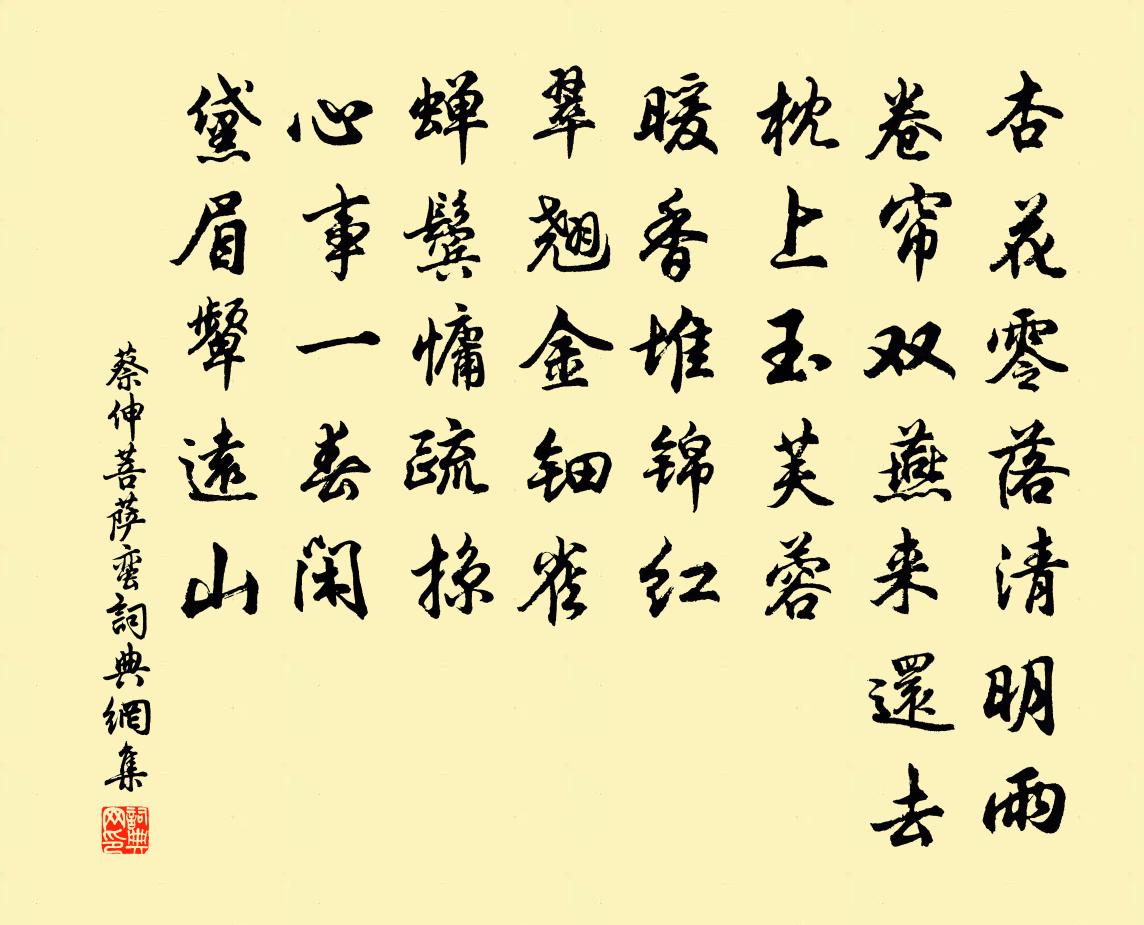 杏花零落清明雨
卷帘双燕来還去
枕上玉芙蓉
暖香堆锦红
翠翘金钿雀
蝉鬓慵疏掠
心事一春闲
黛眉颦遠山
蔡伸菩萨蛮詞典網集
詞典网印